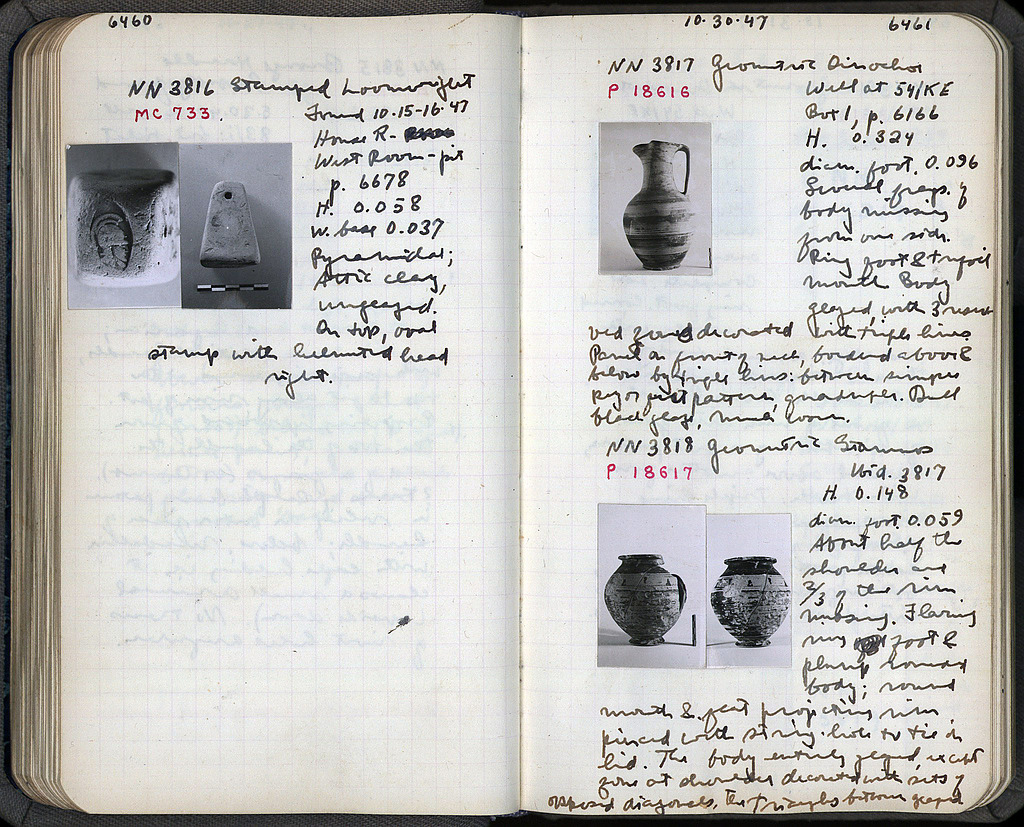 6460
NN 3816 Stamped Loomweight
MC 733.
Found 10.15-16.47
House R-
West Room - pit
p. 6678
H. 0.058
W. base 0.037
Pyramidal;
Attic clay,
unglazed.
On top, oval
stamp with helmeted head
right.
10.30.47
6461
NN 3817 Geometric Oinochoe
P 18616
Well at 54/KE
Box 1, p. 6166
H. 0.324
diam. foot, 0.096
Several frags. of
body missing
from one side.
Ring foot & trefoil
mouth. Body
glazed, with 3 reser-
ved zones decorated with triple lines.
Panel on front of neck, bordered above &
below by triple lines: between simple
key pattern, quadruple. Dull
black glaze, much worn.
NN 3818 Geometric Stamnos
P 18617
Ibid. 3817
H. 0.148
diam. foot 0.059
About half the
shoulder and
2/3 of the rim
missing. Flaring
ring foot &
plump round
body; round
mouth & flat projecting rim,
pierced with string-hole to tie on
lid. The body entirely glazed, except
zone at shoulder decorated with sets of
opposed diagonals, the triangles between glazed